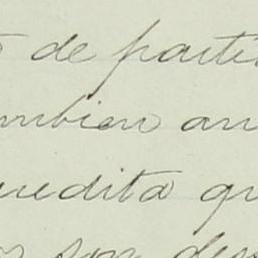 de parti
mbien an
uedita qu
son des